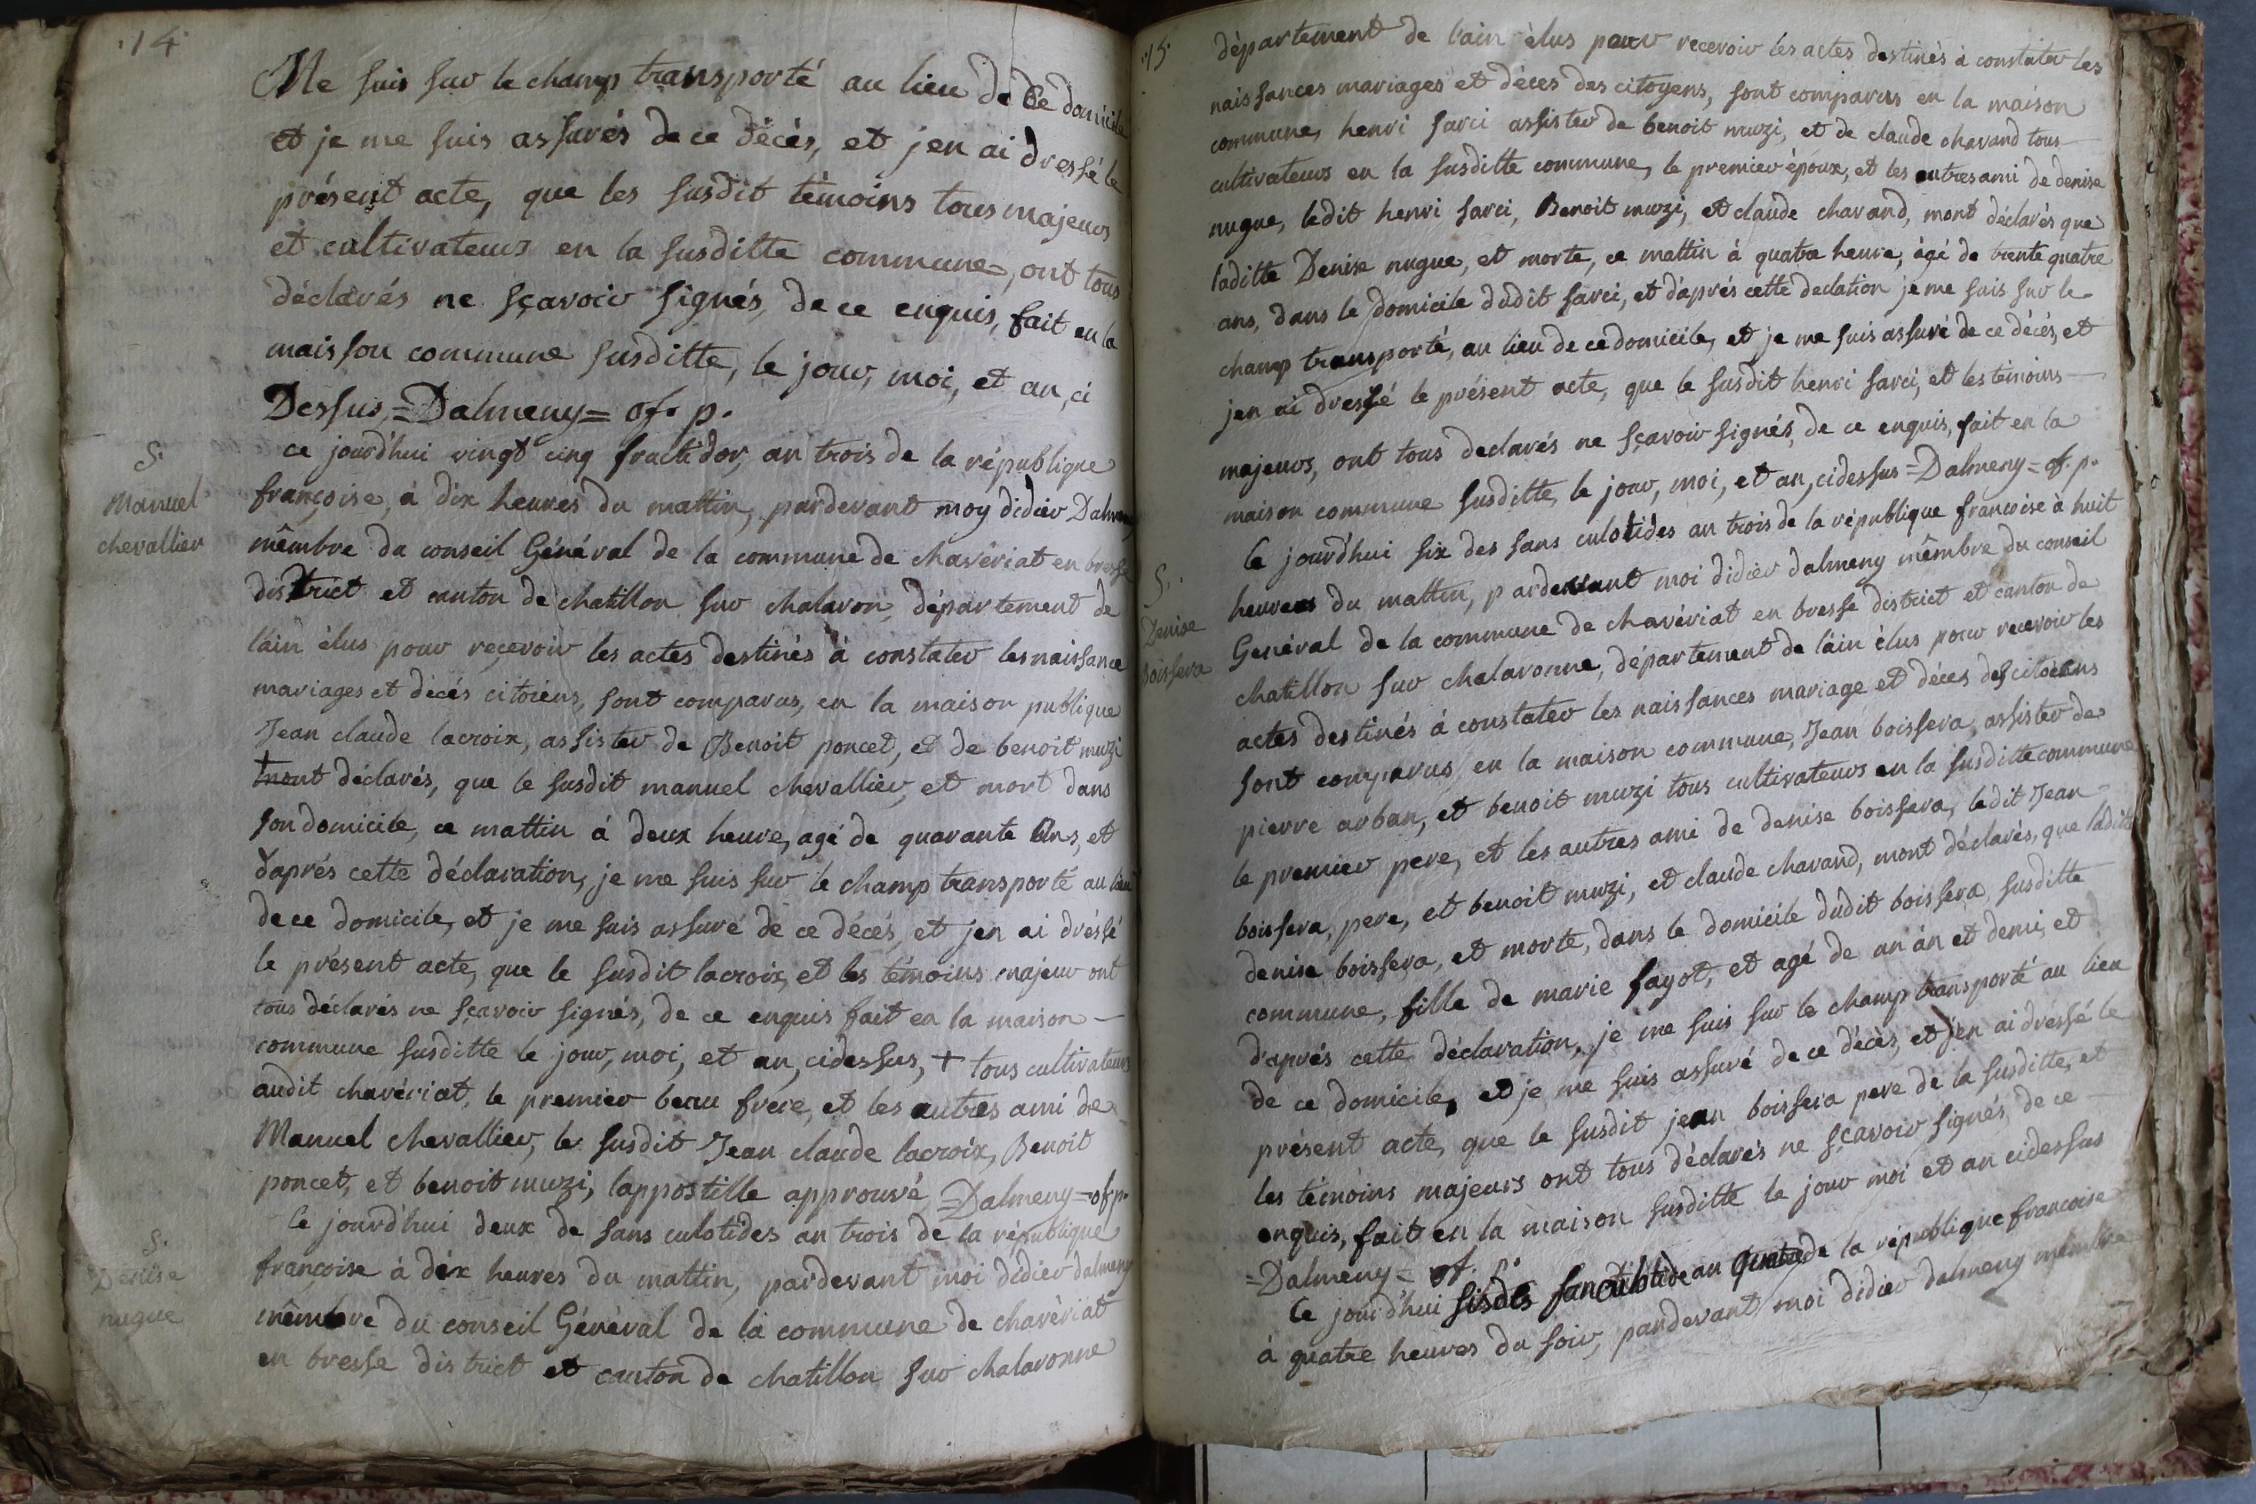 ·14·
Me suis sur le champ transporté au lieu de ce domicile
et je me suis assurés de ce décès, et j'en ai dressé le
présent acte, que les susdit témoins tous majeurs
et cultivateurs en la susditte commune, ont tous
déclarés ne sçavoir signés, de ce enquis, fait en la
maisson commune susditte, le jour, moi, et an, ci
Dessus, =Dalmeny= of. p.
S.
Manuel
chevallier
ce jourd'hui vingt cinq fructidor, an trois de la république
françoise, à dix heures du mattin, pardevant moy didier Dalmeny
mêmbre du conseil Général de la commune de chavèriat en bresse
district et canton de chatillon sur chalaron, département de
l'ain élus pour reçevoir les actes destinés à constater les naissance
mariages et décés citoiens, sont comparus, en la maison publique
Jean claude lacroix, assister de Benoit poncet, et de benoit muzi
mont déclarés, que le susdit manuel chevallier, et mort dans
son domicile, ce mattin à deux heure, agé de quarante ans, et
d'aprés cette déclaration, je me suis sur le champ transporté au lieu
de ce domicile, et je me suis assuré de ce décés, et jen ai dréssé
le présent acte, que le susdit lacroix, et les témoins majeur ont
tous déclarés ne sçavoir signés, de ce enquis fait en la maison
commune susditte le jour, moi, et an, cidessus, + tous cultivateurs
audit chavériat, le premier beau frere, et les autres ami de
Manuel chevallier, le susdit Jean claude lacroix, Benoit
poncet, et benoit muzi, l'appostille approuvé, =Dalmeny= of p.
S.
Denise
nugue
Ce jourd'hui deux de sans culotides an trois de la république
françoise à dix heures du mattin, pardevant moi didier dalmeny
mêmbre du conseil Général de la commune de chavèriat
en bresse district et canton de chatillon sur chalaronne
·15·
département de l'ain élus pour recevoir les actes destinés à constater les
naissances mariages et déces des citoyens, sont comparus en la maison
commune, henri sarci assister de benoit muzi, et de claude chavand tous
cultivateurs en la susditte commune, le premier époux, et les autres ami de denise
nugue, ledit henri sarci, Benoit muzi, et claude chavand, mont déclarés que
laditte Denise nugue, et morte, ce mattin à quatre heure, àgé de trente quatre
ans, dans le domicile dudit sarci, et d'aprés cette declation je me suis sur le
champ transporté, au lieu de ce domicile, et je me suis assuré de ce décés, et
jen ai dressé le présent acte, que le susdit henri sarci, et les temoins
majeurs, ont tous declarés ne sçavoir signés, de ce enquis, fait en la
maison commune susditte, le jour, moi, et an, cidessus =Dalmeny= of. p.
S.
Denise
boissera
Ce jourd'hui six des sans culotides an trois de la république francoise à huit
heures du mattin, pardevant moi didier dalmeny mêmbre du conseil
Genéral de la commune de chavériat en bresse district et canton de
chatillon sur chalaronne, département de l'ain élus pour recevoir les
actes destinés à constater les naissances mariage et déces des citoiens
sont comparus en la maison commune, Jean boissera, assister de
pierre arban, et benoit muzi tous cultivateurs en la susditte commune
le premier pere, et les autres ami de denise boissera, ledit Jean
boissera, pere, et benoit muzi, et claude chavand, mont déclarés, que laditte
denise boissera, et morte, dans le domicile dudit boissera, susditte
commune, fille de marie fayot, et agé de un àn et demi, et
d'aprés cette déclaration, je me suis sur le champ transporté au lieu
de ce domicile, et je me suis assuré de ce décès, et j'en ai dressé le
présent acte, que le susdit jean boissera pere de la susditte, et
les témoins majeurs ont tous déclarés ne sçavoir signés, de ce
enquis, fait en la maison susditte le jour moi et an cidessus
=Dalmeny= of. p.
Ce jourd'hui an de la république francoise
à quatre heures du soir, pardevant moi didier dalmeny mêmbre